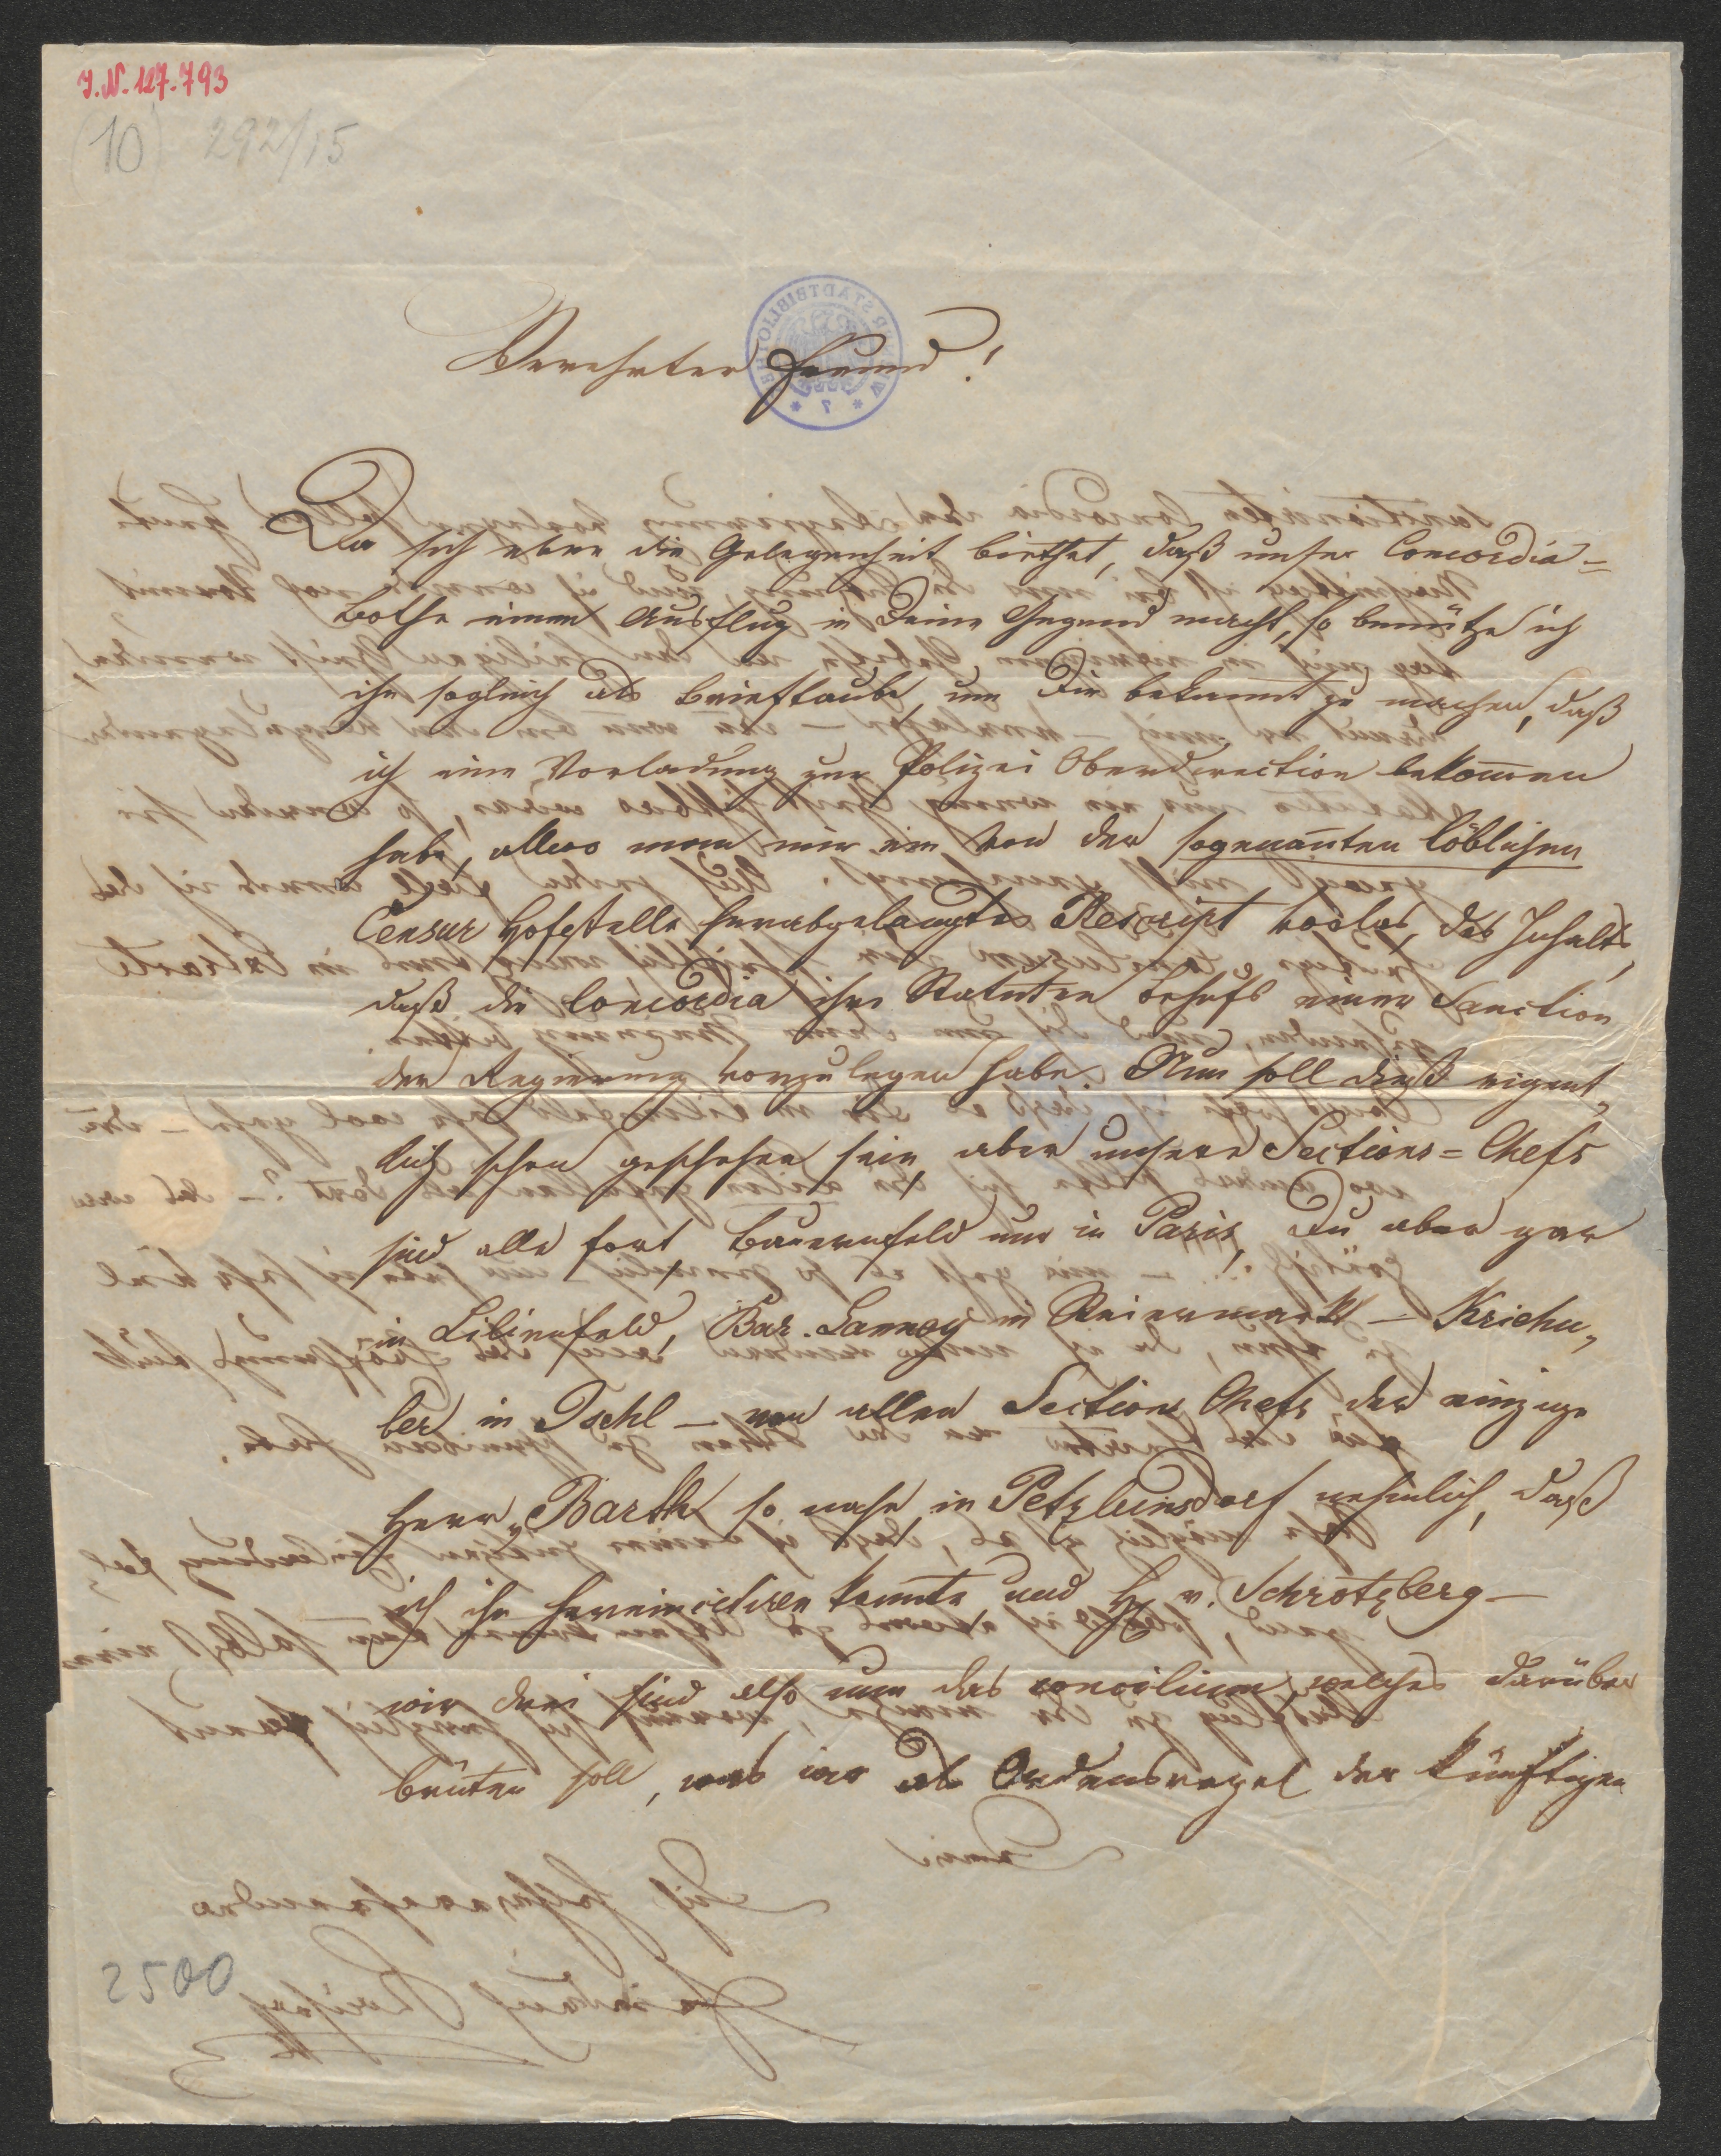 I.N. 127.793
(10) 292/15
Verehrter Freund!
Da sich eben die Gelegenheit biethet, daß unser Concordia-
bothe einen Ausflug in Deine Gegend macht, so benütze ich
ihn sogleich als Brieftaube, um Dir bekannt zu machen, daß
ich eine Vorladung zur Polizei Oberdirection bekom̄en
habe, allwo man mir ein von der sogenan̄ten löblichen
Censur Hofstelle herabgelangtes Rescript vorlas, des Inhalts,
daß die Concordia ihre Statuten behufs einer Sanction
der Regierung vorzulegen habe. Nun soll dieß eigent„
lich schon geschehen sein, aber unsere Sections=Chefs
sind alle fort, Bauernfeld nun in Paris, Du aber gar
in Lilienfeld, Bar. Lannoy in Steiermark – Kriehu„
ber in Ischl – von allen Sections Chefs der einzige
Herr Barth so nahe, in Petzleinsdorf nehmlich, daß
ich ihn hereincitiren konnte und H. v. Schrotzberg –
wir drei sind also nun das concilium, welches darüber
brüten soll, was wir als Ordensregel der künftigen
2500